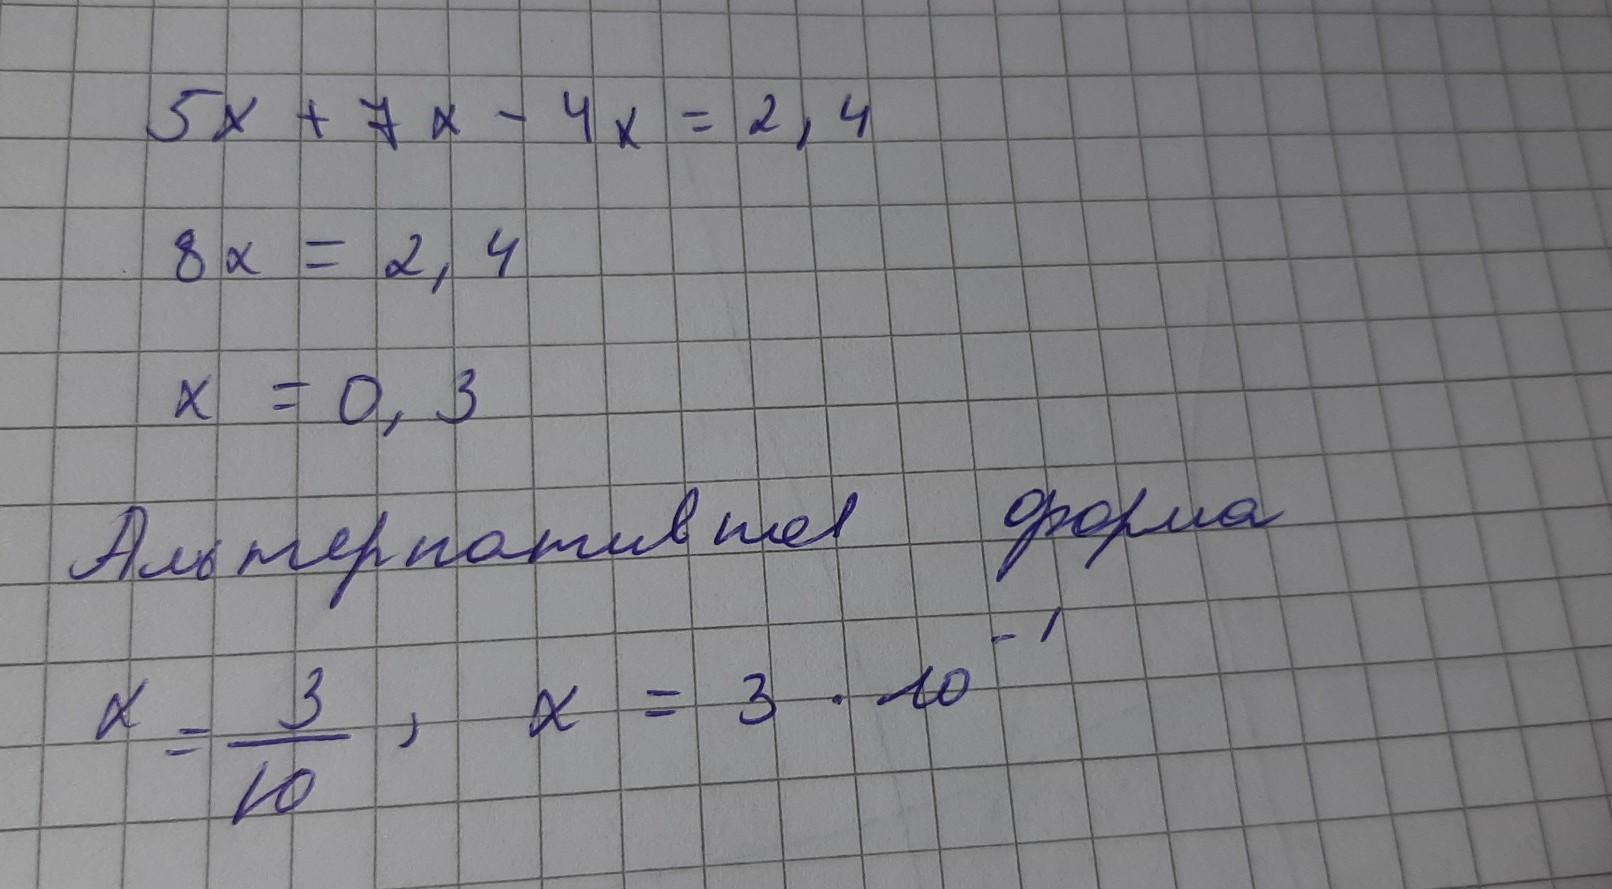 5x + 7x - 4x = 2,4
8x = 2,4
x = 0,3
Альтернативная форма
x = 3/10, x = 3 · 10⁻¹